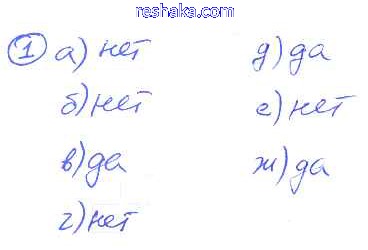 reshaka.com
1 а) нет
б) нет
в) да
г) нет
д) да
е) нет
ж) да